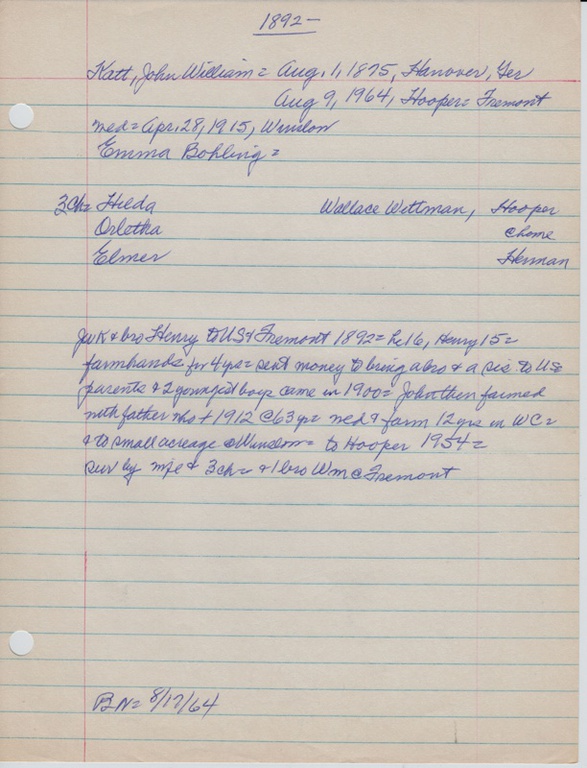 1892-
Katt, John William = Aug. 1, 1875, Hanover, Ger
Aug 9, 1964, Hooper = Fremont
med = Apr. 28, 1915, Winslow
Emma Bohling =
3ch = Hilda Wallace Wittman, Hooper
Orletha @home
Elmer Herman
JWK & bro Henry to US & Fremont 1892 = he 16, Henry 15 =
farmhands for 4 yrs = sent money to bring a bro & a sis to US
parents & 2 youngest boys came in 1900 = John then farmed
with father who + 1912 @ 63 yr = med & farm 12 yrs in WC =
& to small acreage @ Winslow = to Hooper 1954 =
sur by wife & 3 ch = & 1 bro Wm @ Fremont
BN = 8/17/64